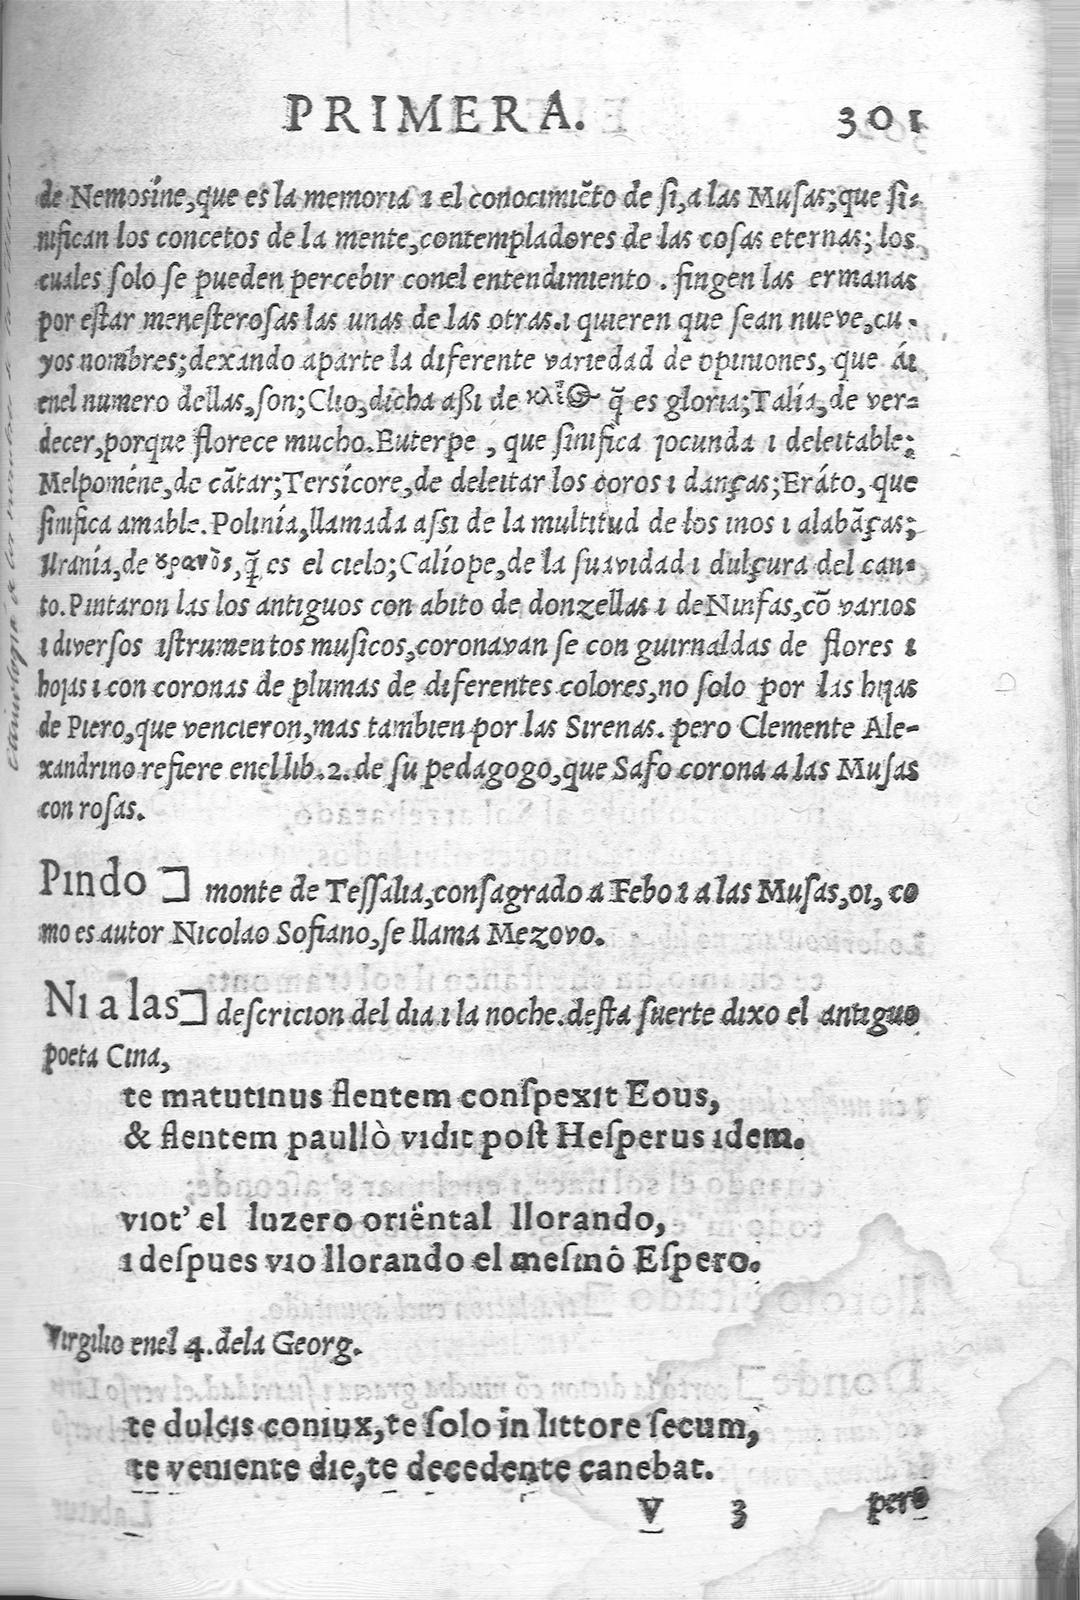 PRIMERA. 301
de Nemosíne,que es la memoria ı el conocimiẽto de ſi,a las Muſas;que ſi-
nifican los concetos de la mente,contempladores de las coſas eternas; los
cuales ſolo ſe pueden percebir conel entendimiento . fingen las ermanas
por eſtar meneſteroſas las unas de las otras.ı quieren que ſean nueve,cu-
yos nombres;dexando aparte la diferente variedad de opiniones, que áı
enel numero dellas,ſon;Clıo,dicha aßi de q̃ es gloria;Talía,de ver-
decer,porque florece mucho.Euterpe , que ſinifica ȷocunda ı deleitable;
Melpoméne,de cãtar;Tersícore,de deleitar los coros ı danças;Eráto, que
ſinifica amable. Polinía,llamada aſsi de la multitud de los inos ı alabãças;
Uranía,de ȣρανὸς,q̃ es el cielo;Calíope,de la ſuavidad ı dulçura del can-
to.Pintaron las los antiguos con abito de donzellas ı deNinfas,cõ varios
ı diversos iſtrumentos muſicos,coronavan ſe con guirnaldas de flores ı
hoȷas ı con coronas de plumas de diferentes colores,no ſolo por las hiȷas
de Piero,que vencieron,mas tambien por las Sirenas. pero Clemente Ale-
xandrino refiere enel lib.2. de ſu pedagogo,que Safo corona a las Muſas
con roſas.
Pindo ⊐ monte de Teſſalia,conſagrado a Febo ı a las Muſas,oı, co
mo es autor Nicolao Sofiano,ſe llama Mezovo.
Nı a las ⊐ deſcricion del dia ı la noche.deſta ſuerte dixo el antiguo
poeta Cina,
te matutinus flentem conſpexit Eous,
& flentem paullò vidit poſt Heſperus idem.
vıot’ el luzero oriëntal llorando,
ı deſpues vıo llorando el meſmô Eſpero.
Virgilio enel 4.dela Georg.
te dulcis coniux,te ſolo in littore ſecum,
te veniente die,te decedente canebat.
V 3 pero